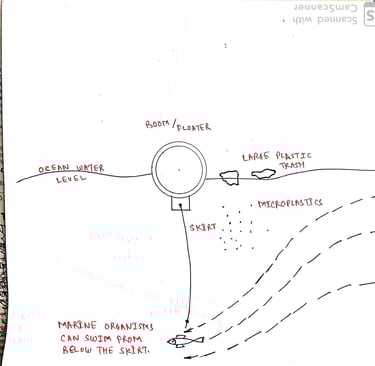 Scanned with
CamScanner
BOOM/
FLOATER
LARGE PLASTIC
TRASH
OCEAN WATER
LEVEL
MICROPLASTICS
SKIRT
MARINE ORGANISMS
CAN SWIM FROM
BELOW THE SKIRT.